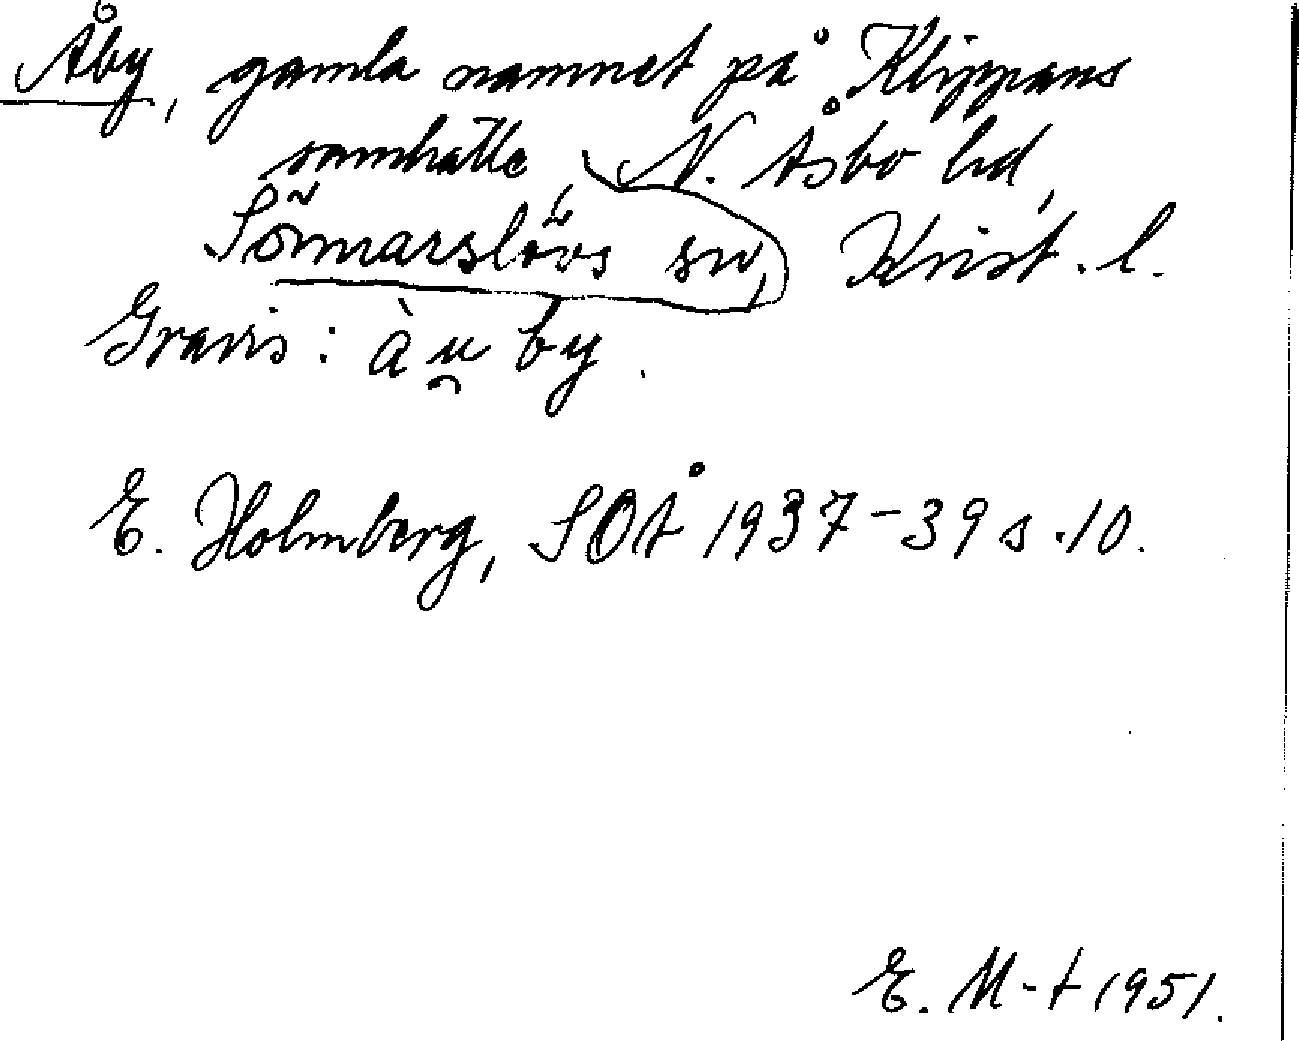 Åby, gamla namnet på Klippans
samhälle, N. Åsbo hd,
Sönnarslövs sn, Krist. l.
Gravis: àu̯ by.
E. Holmberg, SOÅ 1937-39 s. 10.
E. M-t 1951.